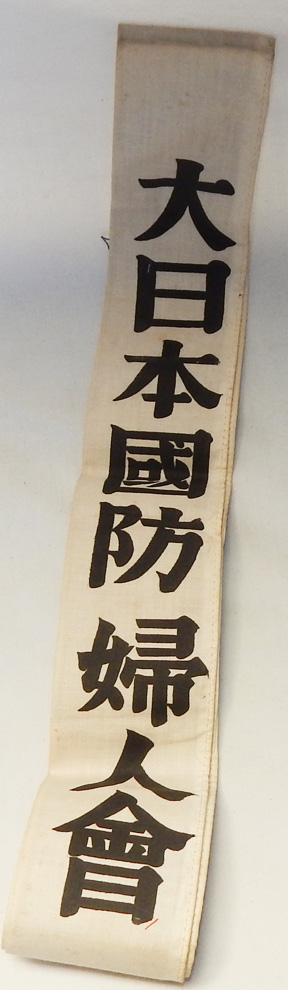 大日本國防婦人會